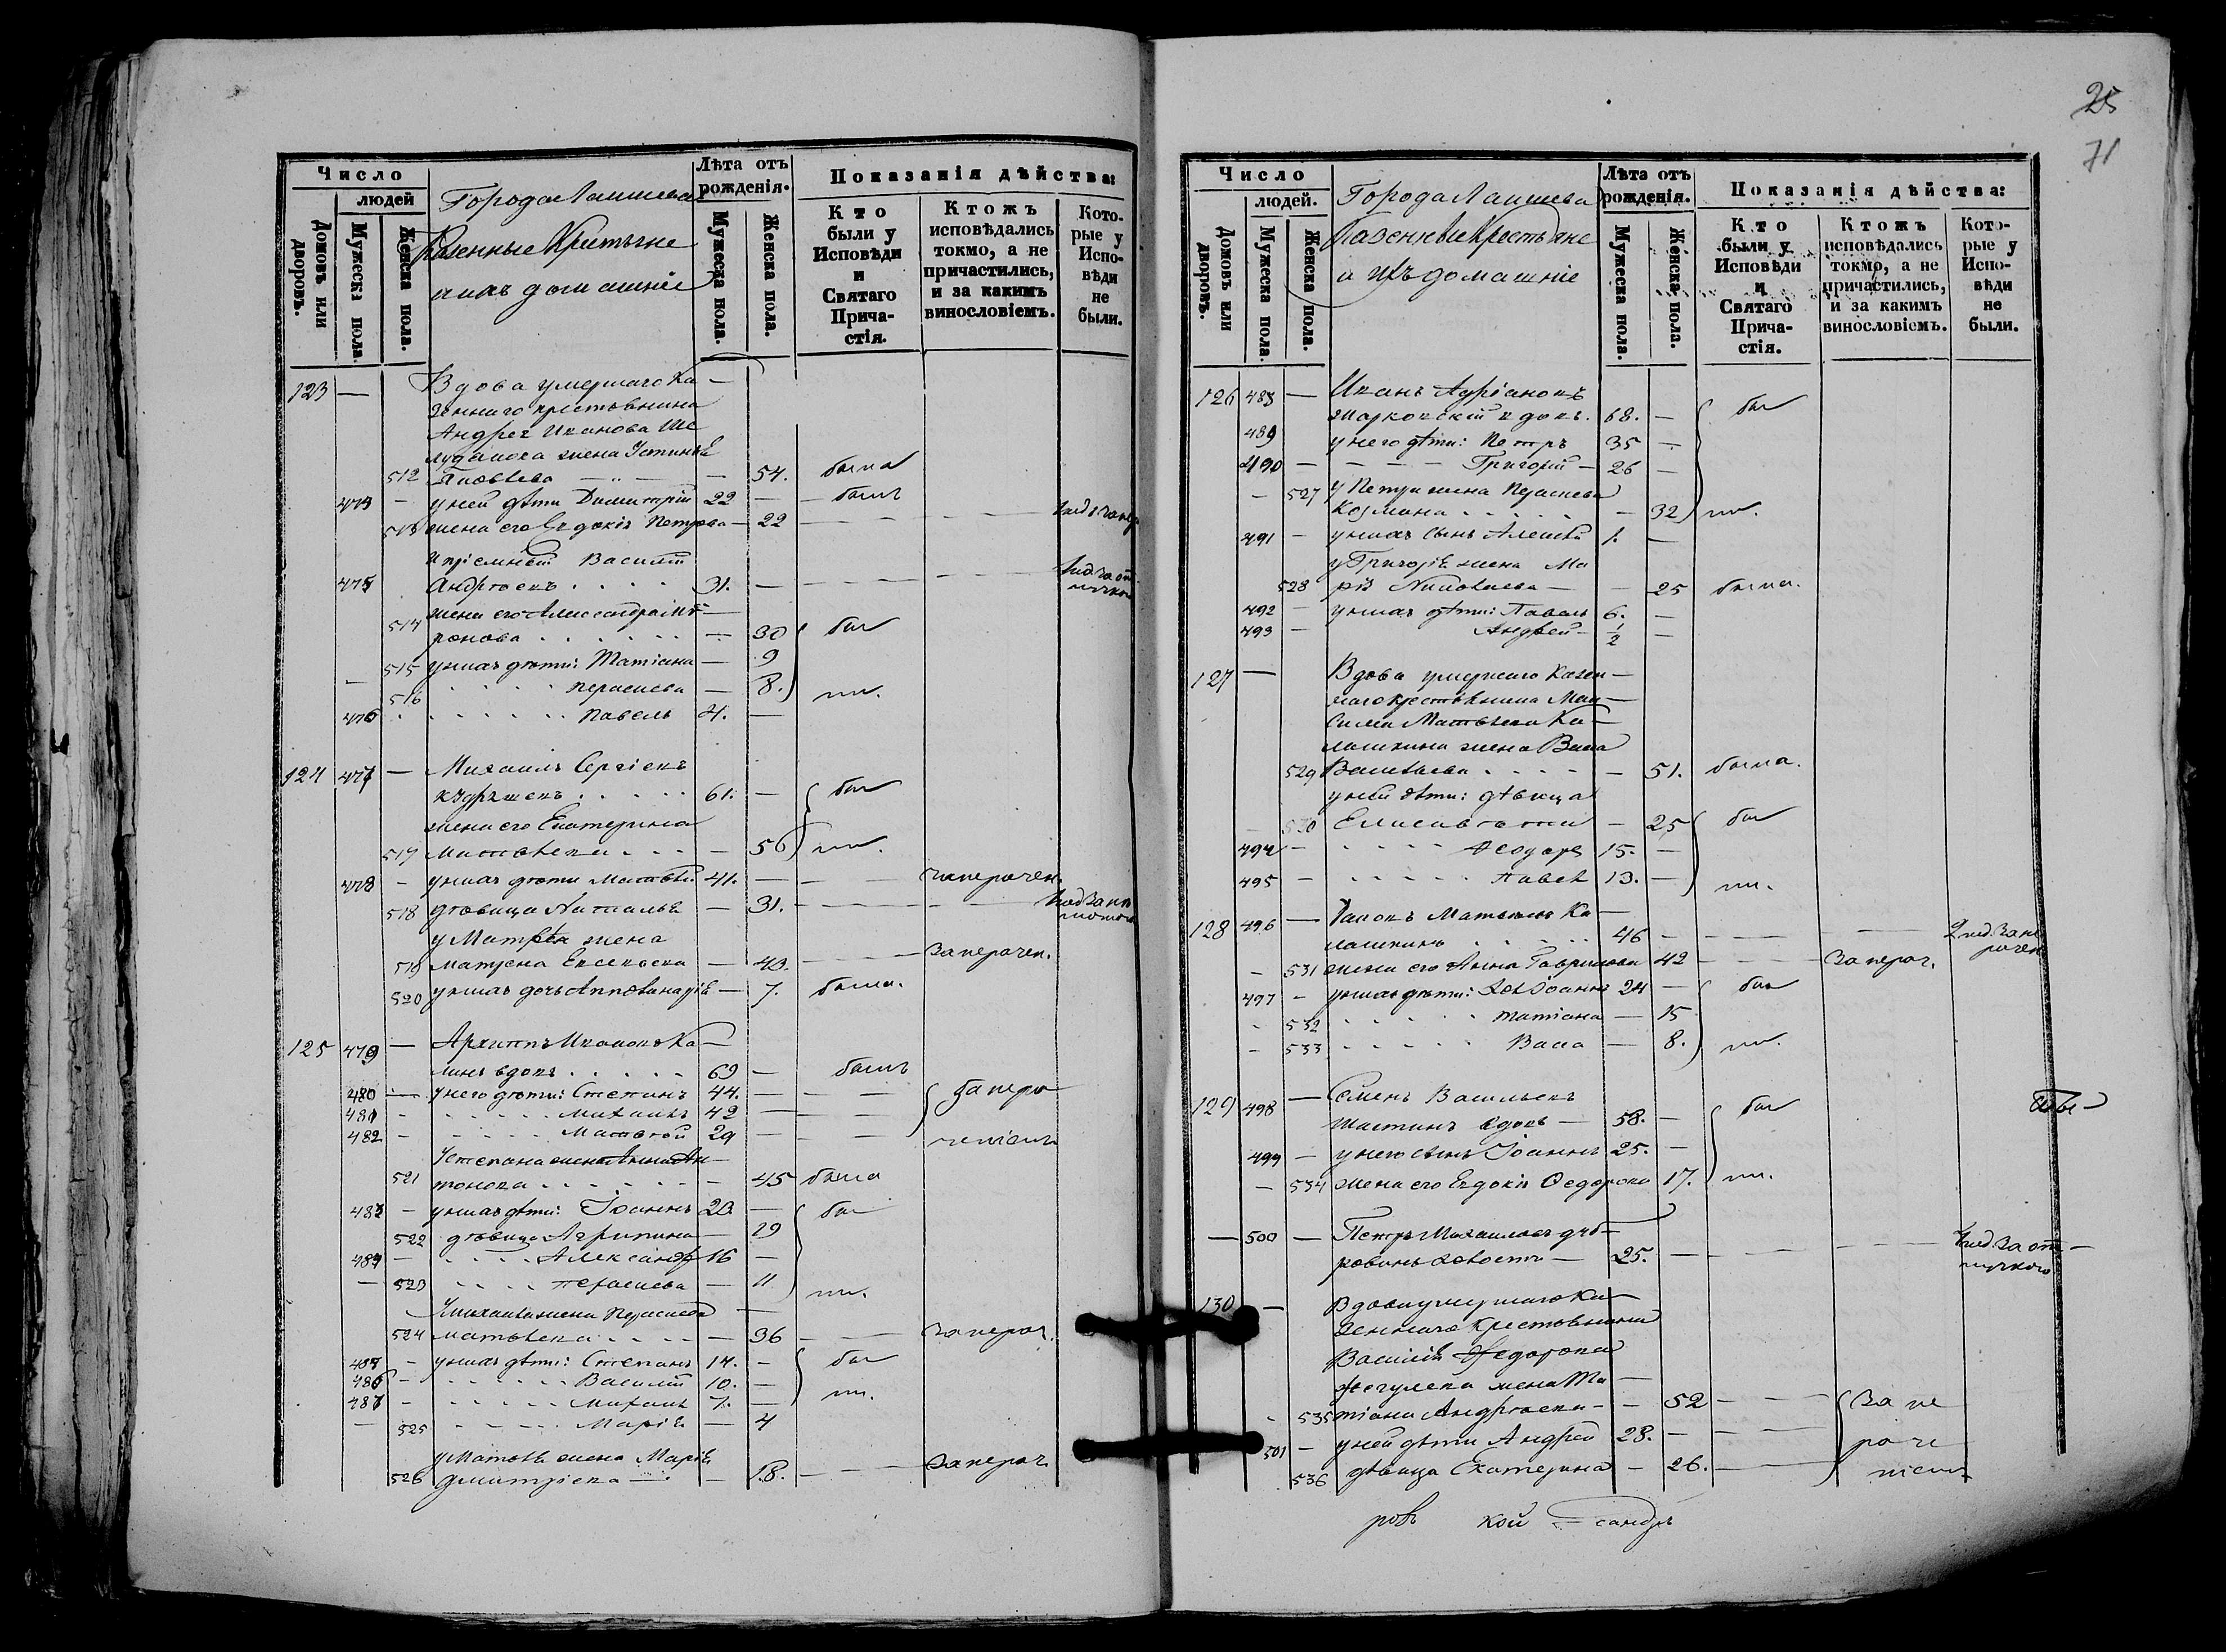 Число
людей
Домовъ или дворовъ.
Мужеска пола.
Женска пола.
Города Лаишева
Казенные Крестьяне
и ихъ домашніе
Лѣта отъ рожденія.
Мужеска пола.
Женска пола.
Показанія дѣйства:
Кто были у Исповѣди и Святаго Причастія.
Ктожъ исповѣдались токмо, а не причастились, и за какимъ винословіемъ.
Которые у Исповѣди не были.
123 — Вдова умершаго Ка-
зеннаго крестьянина
Андрея Иванова Ше
лудакова жена Устинья
512 Яковлева — — 54. была
474 - у ней дѣти Димитрій 22 — былъ
513 жена его Евдокія Петрова — 22 — —
и пріемышъ Василій
475 Андреевъ 31. — — —
514 жена его Александра
— 30 бы
515 у нихъ дѣти: Татіана — 9
516 Параскева — 8. ли.
476 Павелъ 4. —
124 477 — Михаилъ Сергіевъ
61. — бы
жена его Екатерина
517 Матвѣева — 56 ли.
478 - у нихъ дѣти Матвѣй 41. — — за нерачен.
518 дѣвица Наталья — 31. — —
у Матвѣя жена
519 Матрена Евсевьева — 43. — за нерачен.
520 у нихъ дочь Апполинарія — 7. была.
125 479 — Архиппъ Ивановъ Ка-
линъ вдовъ 69 — былъ
480 — у него дѣти: Степанъ 44. — — за нера
481 - Михаилъ 42 — —
482 - Матвѣй 29 — — ченіемъ
У Степана жена Анна Ан-
521 тонова — 45 была
483 - у нихъ дѣти: Іоаннъ 20. — бы
522 дѣвица Агрипина — 19
484 — Александръ 16 —
— 523 Параскева — 11. ли.
У Михаила жена Параскева —
524 Матвѣева — 36 — за нерач.
485 - у нихъ дѣти: Степанъ 14. - бы
486 - Василій 10. -
487 - Михаилъ 7. — ли.
— 525 Марія — 4
у Матвѣя жена Марія
526 Димитріева — 18. — за нерач.
25
71
Число
людей.
Домовъ или дворовъ.
Мужеска пола.
Женска пола.
Города Лаишева
Казенные Крестьяне
и ихъ домашніе
Лѣта отъ рожденія.
Мужеска пола.
Женска пола.
Показанія дѣйства:
Кто были у Исповѣди и Святаго Причастія.
Ктожъ исповѣдались токмо, а не причастились, и за какимъ винословіемъ.
Которые у Исповѣди не были.
126 488 — Иванъ Адріановъ
вдовъ. 68. — бы
489 у него дѣти: Петръ 35 —
490 — — — Григорій — 26 —
- 527 у Петра жена Параскева
Козмина — 32 ли.
491 - у нихъ сынъ Алексѣй 1. —
у Григорія жена Ма
528 рія Яковлева — 25 была.
492 - у нихъ дѣти: Павелъ 6. —
493 - Андрей — 1/2 —
127 — Вдова умершаго Казен-
наго крестьянина Мак-
сима Матвѣева Ка-
лашкина жена Васса
529 Васильева — 51. была.
у ней дѣти: дѣвица
530 Елисавета — 25 бы
494 - Ѳеодоръ 15. —
495 - Павелъ 13. — ли.
128 496 — Яковъ Матвѣевъ Ка-
лашкинъ 46 — — —
- 531 жена его Анна Гаврилова 42 — за нерач.
497 - у нихъ дѣти: Іоаннъ 24 — бы
- 532 Татіана — 15
- 533 Васса — 8. ли.
129 498 — Семенъ Васильевъ
вдовъ — 58. — бы
499 — у него сынъ Іоаннъ 25. —
— 534 жена его Евдокія Ѳедорова 17. ли.
— 500 — Петръ Михаиловъ Дуб-
ровинъ холостъ — 25. — — —
130 — Вдова умершаго Ка-
зеннаго крестьянина
Василія Ѳедорова
жена Та-
535 тіана Андреева — 52 — за не
501 - у ней дѣти Андрей 28. — — раче
536 дѣвица Екатерина — 26. — ніемъ
ровъ кой сандръ